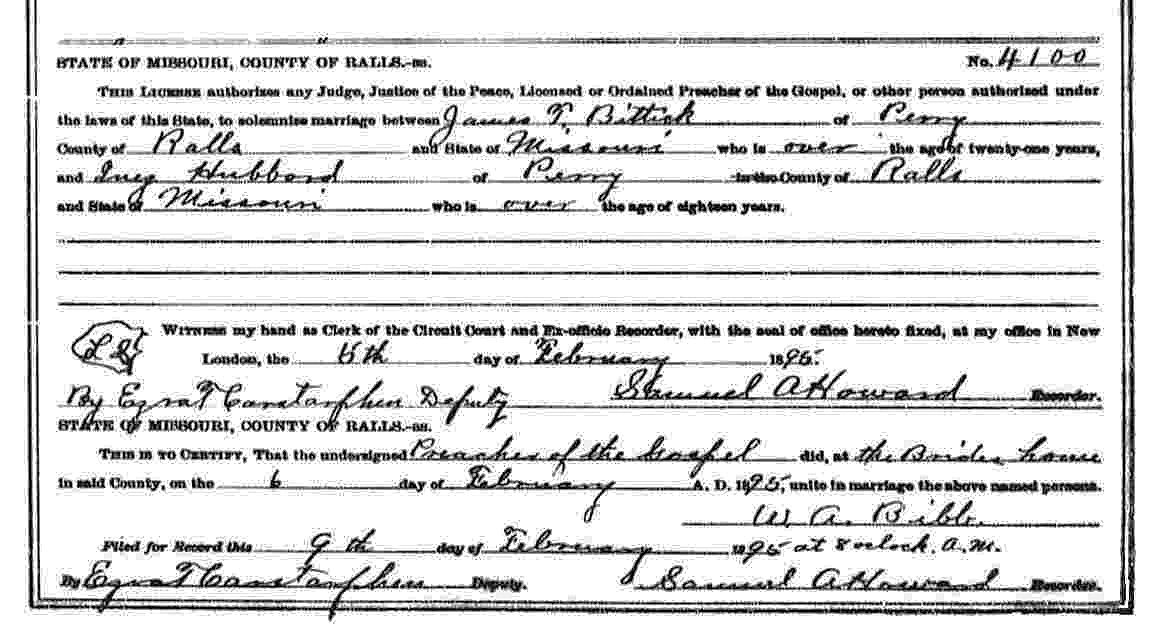 STATE OF MISSOURI, COUNTY OF RALLS.-ss. No. 4100
THIS LICENSE authorizes any Judge, Justice of the Peace, Licensed or Ordained Preacher of the Gospel, or other person authorized under
the laws of this State, to solemnize marriage between James T. Bittick of Perry
County of Ralls and State of Missouri who is over the age of twenty-one years,
and Inez Hubbard of Perry in the County of Ralls
and State of Missouri who is over the age of eighteen years.
L S
WITNESS my hand as Clerk of the Circuit Court and Ex-officio Recorder, with the seal of office hereto fixed, at my office in New
London, the 5th day of February 1895.
By Ezra T Carstarphen Deputy Samuel A Howard Recorder.
STATE OF MISSOURI, COUNTY OF RALLS.-ss.
THIS IS TO CERTIFY, That the undersigned Preacher of the Gospel did, at the Brides home
in said County, on the 6 day of February A. D. 1895, unite in marriage the above named persons.
W. A. Bibb.
Filed for Record this 9th day of February 1895 at 8 oclock. A.M.
By Ezra T Carstarphen Deputy. Samuel A Howard Recorder.